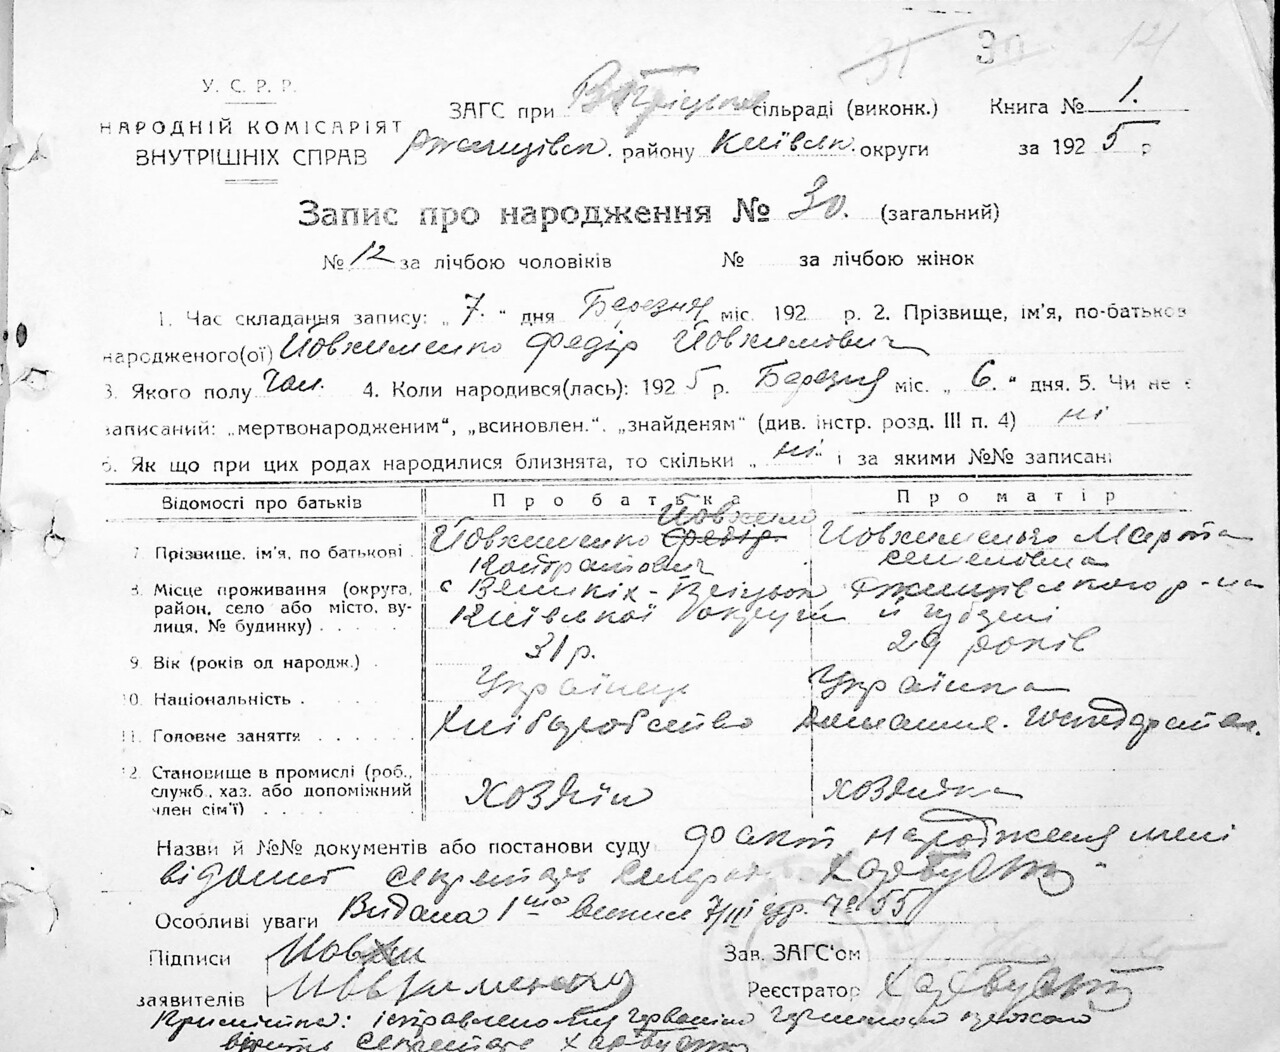 30
У. С. Р. Р.
НАРОДНІЙ КОМІСАРІЯТ
ВНУТРІШНІХ СПРАВ
ЗАГС при сільраді (виконк.) Книга № 1.
району Київськ. округи за 1925 р
Запис про народження № 30. (загальний)
№ 12 за лічбою чоловіків № за лічбою жінок
1. Час складання запису: „7.“ дня Березня міс. 192 р. 2. Прізвище, ім'я, по-батьков
народженого(ої) Йовхименко Федір Йовхимович
3. Якого полу чол. 4. Коли народився(лась): 1925 р. Березня міс. „6.“ дня. 5. Чи не є
записаний: „мертвонародженим“, „всиновлен.“, „знайденям“ (див. інстр. розд. III п. 4) ні
6. Як що при цих родах народилися близнята, то скільки „ні“ і за якими №№ записані
Відомості про батьків Про батька Про матір
7. Прізвище, ім'я, по батькові Йовхименко Федір. Йовхим Кондратович Йовхименко Марта семеновна
8. Місце проживання (округа, район, село або місто, вулиця, № будинку) с Великіх-Київської округи й губерні
9. Вік (років од народж.) 31 р. 29 років
10. Національність Українець Українка
11. Головне заняття Хліборобство господарства.
12. Становище в промислі (роб., служб., хаз. або допоміжний член сім'ї) хозяїн хозяйка
Назви й №№ документів або постанови суду народження мені
секретарь
Особливі уваги Видана 1 виписка 7/III 25р. № 55
Підписи Йовхи Зав. ЗАГС'ом
заявителів Йовхименко Реєстратор
Примітка: ісправленому
вірить секретарь